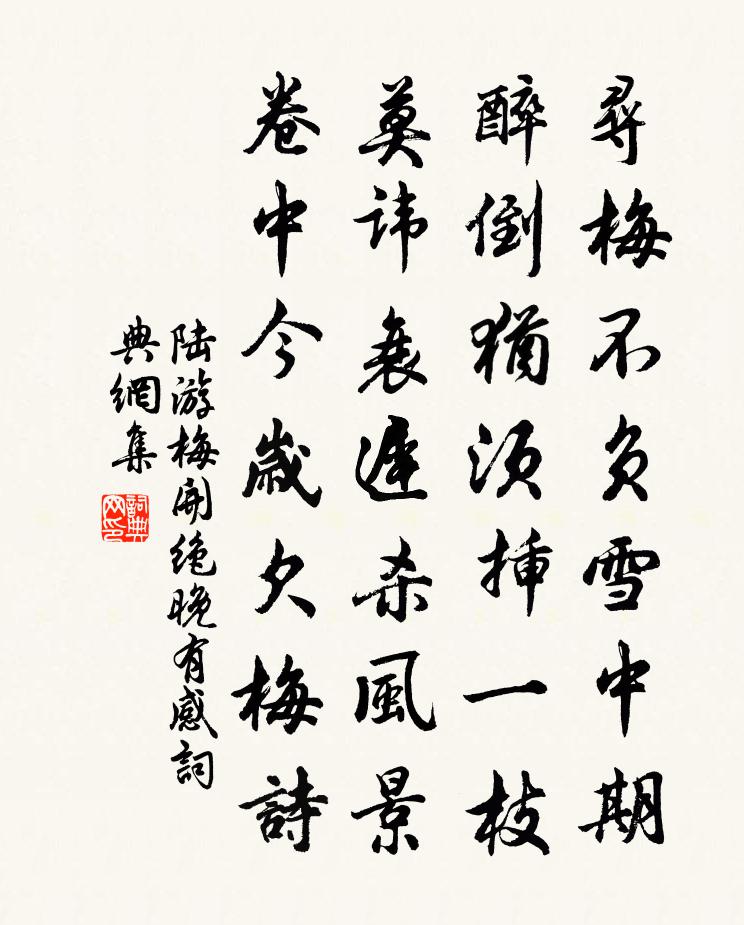 尋梅不負雪中期
醉倒猶須插一枝
莫諱衰遲殺風景
卷中今歲欠梅詩
陸游梅開絕晚有感詞
典網集
詞典網印